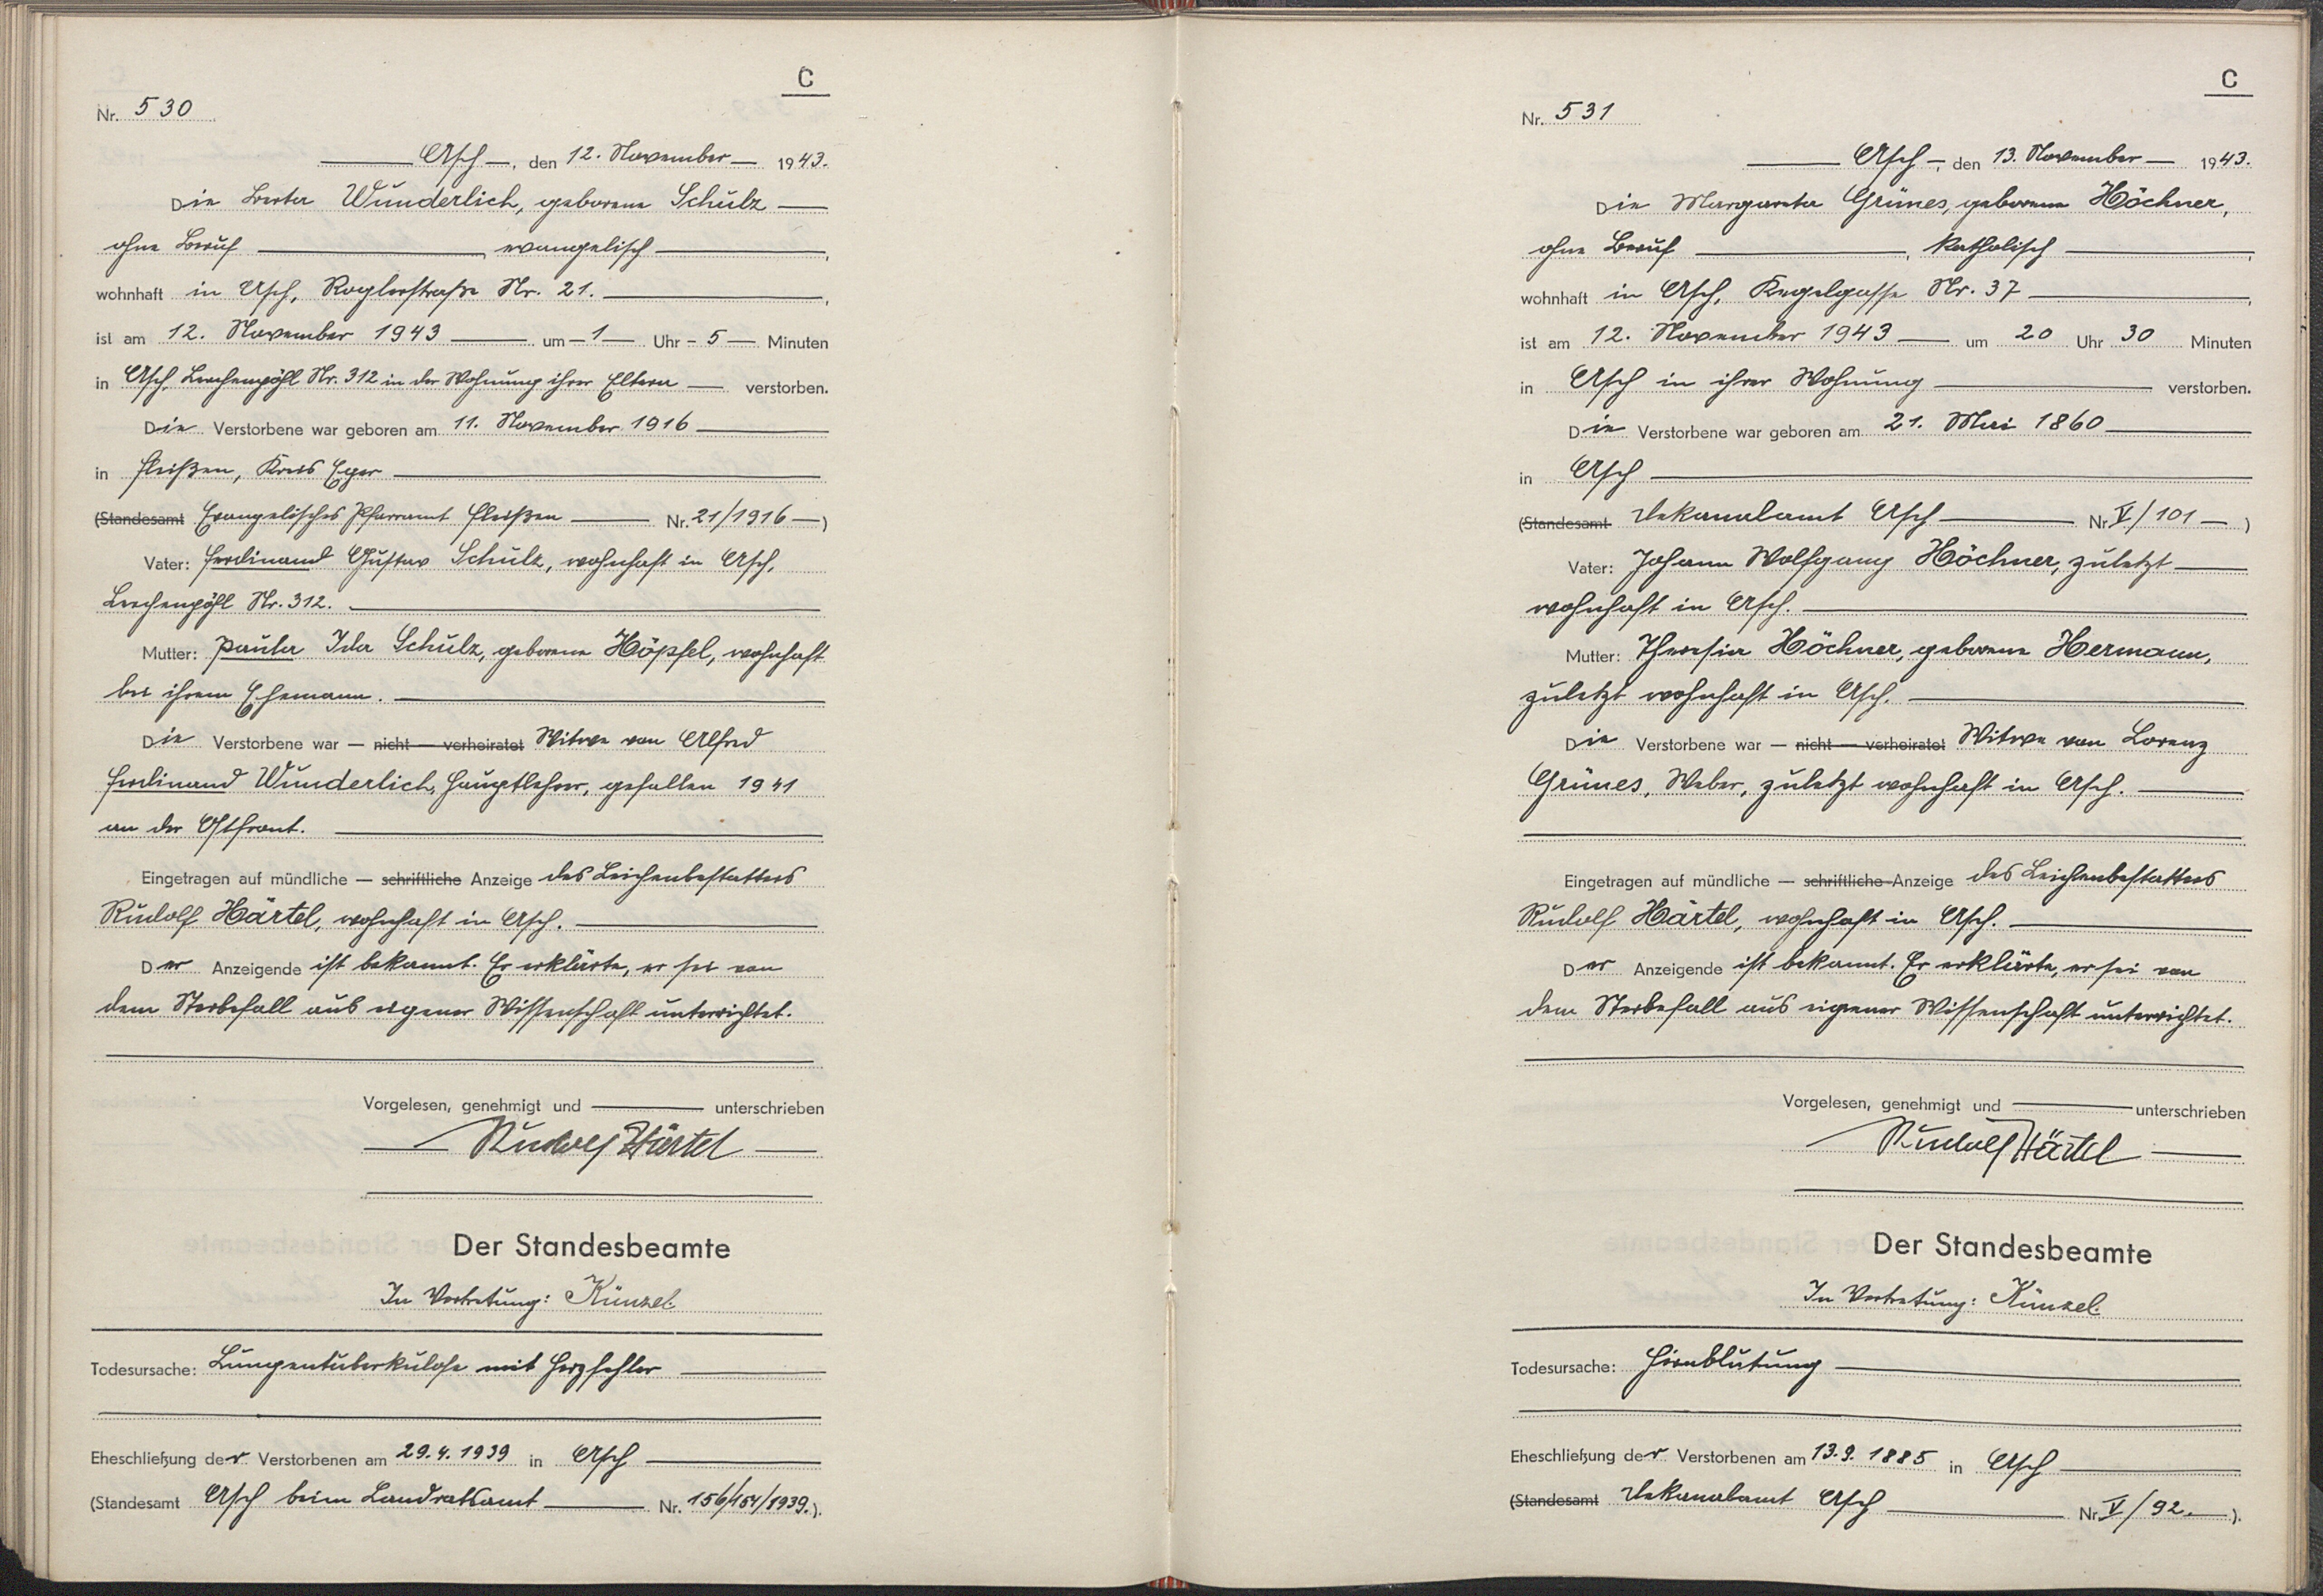 C
Nr. 530
Asch, den 12. November 1943.
Die Berta Wunderlich, geborene Schulz
ohne Beruf, evangelisch,
wohnhaft in Asch, Roglerstraße Nr. 21.,
ist am 12. November 1943 um 1 Uhr 5 Minuten
in Asch, Lerchenpöhl Nr. 312 in der Wohnung ihrer Eltern verstorben.
Die Verstorbene war geboren am 11. November 1916
in Fleißen, Kreis Eger
(Standesamt Evangelisches Pfarramt Fleißen Nr. 21/1916)
Vater: Ferdinand Gustav Schulz, wohnhaft in Asch,
Lerchenpöhl Nr. 312.
Mutter: Paula Ida Schulz, geborene Höpfel, wohnhaft
bei ihrem Ehemann.
Die Verstorbene war — nicht — verheiratet Witwe von Alfred
Ferdinand Wunderlich, Hauptlehrer, gefallen 1941
an der Ostfront.
Eingetragen auf mündliche — schriftliche Anzeige des Leichenbestatters
Rudolf Härtel, wohnhaft in Asch.
Der Anzeigende ist bekannt. Er erklärte, er sei von
dem Sterbefall aus eigener Wissenschaft unterrichtet.
Vorgelesen, genehmigt und unterschrieben
Rudolf Härtel
Der Standesbeamte
In Vertretung: Künzel.
Todesursache: Lungentuberkulose mit Herzfehler
Eheschließung der Verstorbenen am 29.4.1939 in Asch
(Standesamt Asch beim Landratsamt Nr. 156/154/1939.).
C
Nr. 531
Asch, den 13. November 1943.
Die Margareta Grünes, geborene Höchner,
ohne Beruf, katholisch,
wohnhaft in Asch, Kegelgasse Nr. 37,
ist am 12. November 1943 um 20 Uhr 30 Minuten
in Asch in ihrer Wohnung verstorben.
Die Verstorbene war geboren am 21. Mai 1860
in Asch
(Standesamt Dekanalamt Asch Nr. V/101)
Vater: Johann Wolfgang Höchner, zuletzt
wohnhaft in Asch.
Mutter: Theresia Höchner, geborene Hermann,
zuletzt wohnhaft in Asch.
Die Verstorbene war — nicht — verheiratet Witwe von Lorenz
Grünes, Weber, zuletzt wohnhaft in Asch.
Eingetragen auf mündliche — schriftliche Anzeige des Leichenbestatters
Rudolf Härtel, wohnhaft in Asch.
Der Anzeigende ist bekannt. Er erklärte, er sei von
dem Sterbefall aus eigener Wissenschaft unterrichtet.
Vorgelesen, genehmigt und unterschrieben
Rudolf Härtel
Der Standesbeamte
In Vertretung: Künzel.
Todesursache: Hirnblutung
Eheschließung der Verstorbenen am 13.9.1885 in Asch
(Standesamt Dekanalamt Asch Nr. V/92.).